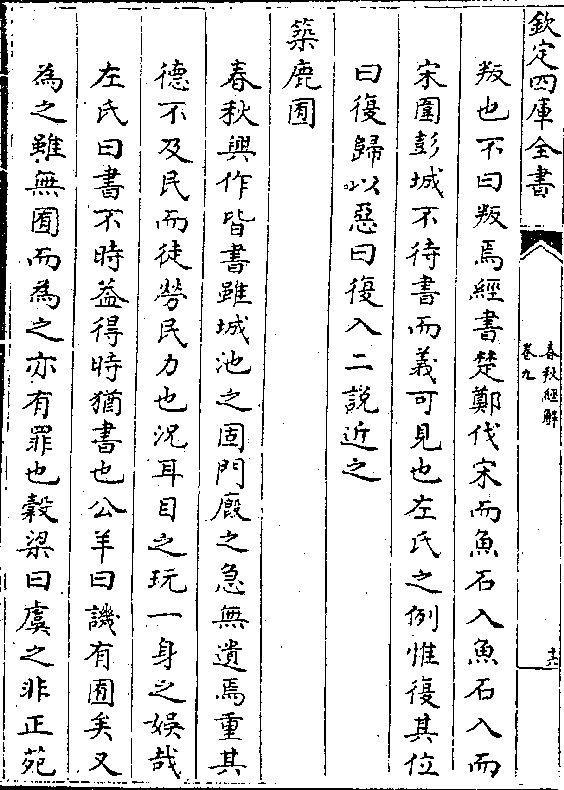 欽定四庫全書
春秋經解
卷九
十六
叛也不曰叛焉經書楚鄭伐宋而魚石入魚石入而
宋圍彭城不待書而義可見也左氏之例惟復其位
曰復歸以惡曰復入二説近之
築鹿囿
春秋興作皆書雖城池之固門廐之急無遺焉重其
德不及民而徒勞民力也況耳目之玩一身之娱哉
左氏曰書不時益得時猶書也公羊曰譏有囿矣又
為之雖無囿而為之亦有罪也榖梁曰虞之非正苑